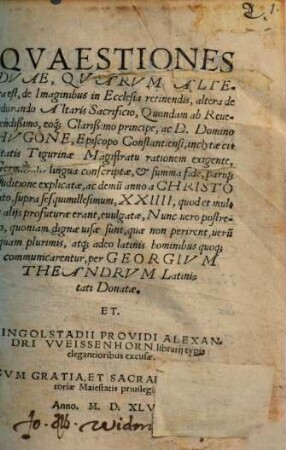 QVAESTIONES
DVAE, QVARVM ALTE-
ra est, de Imaginibus in Ecclesia retinendis, altera de
durando Altaris Sacrificio, Quondam ab Reue-
rendissimo, eoq́; Clarissimo principe, ac D. Domino
HVGONE, Episcopo Constantiensi, inclytæ ci-
tatis Tigurinæ Magistratu rationem exigente,
lingua conscriptæ, & summa fide, pariq́;
uditione explicatæ, ac demũ anno a CHRISTO
ato, supra sesquimillesimum, XXIIII, quod et mul
alijs profuturæ erant, euulgatæ, Nunc uero postre-
o, quoniam dignæ uisæ sunt, quæ non perirent, uerũ
quam plurimis, atq́; adeo latinis hominibus quoq;
communicarentur, per GEORGIVM
THEANDRVM Latinis
tati Donatæ.
ET.
INGOLSTADII PROVIDI ALEXAN-
DRI VVEISSENHORN librarij typis
elegantioribus excusæ.
VM GRATIA, ET SACRAE
toriæ Maiestatis priuilegi
Anno. M. D. XLV
Jo. Alb. Widm